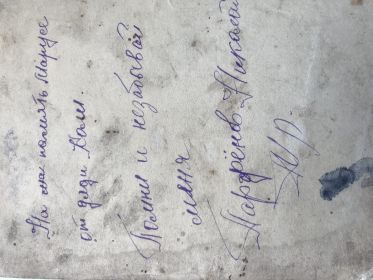 На память Марусе
от дяди Коли.
Помни и незабывай
меня
Парфёнов Никола